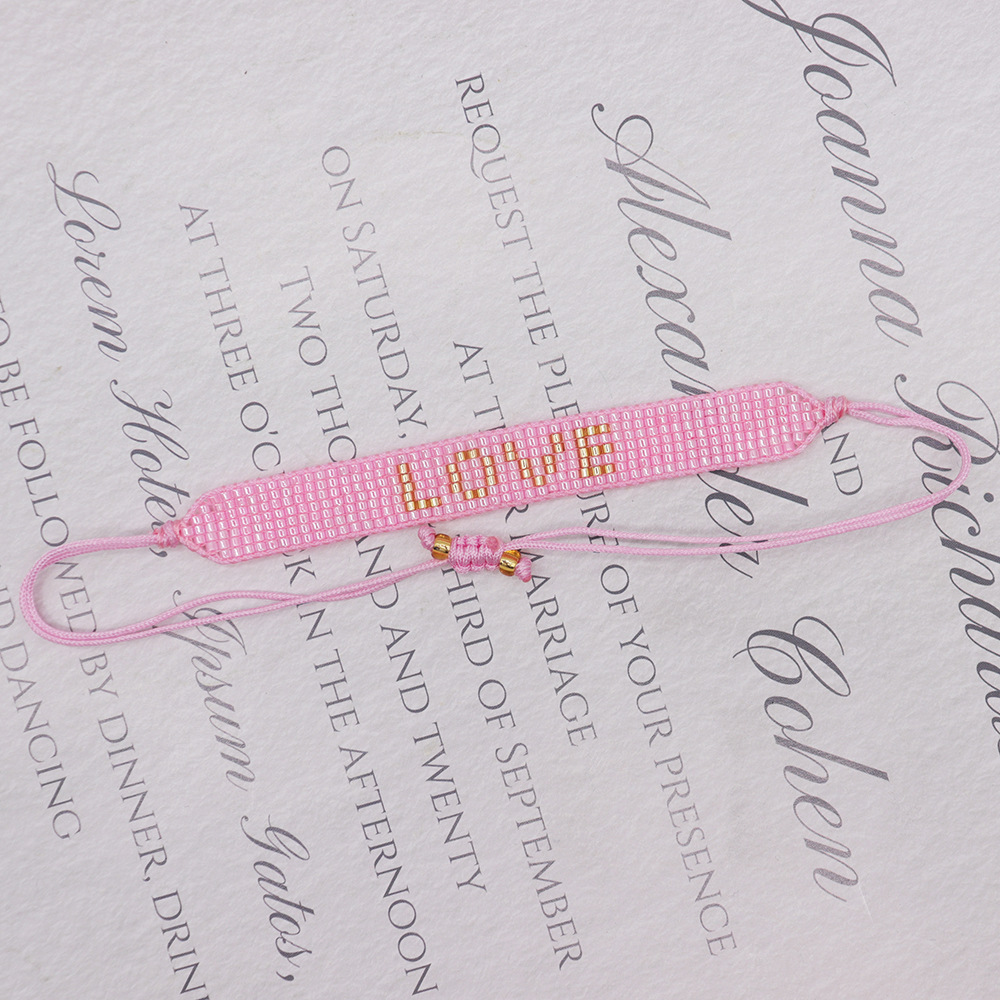 Joanna Richards
AND
Alexander Cohen
REQUEST THE PLEASURE OF YOUR PRESENCE
AT THEIR MARRIAGE
ON SATURDAY, THIRD OF SEPTEMBER
TWO THOUSAND AND TWENTY
AT THREE O'CLOCK IN THE AFTERNOON
Lorem Hotel, Ipsum Gatos,
TO BE FOLLOWED BY DINNER, DRIN
AND DANCING
LOVE